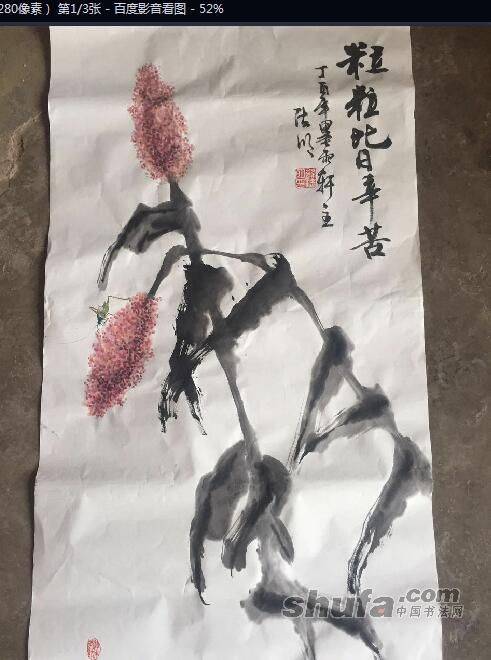 280像素 ）第1/3张 - 百度影音看图 - 52%
粒粒皆辛苦
丁酉年墨雨轩主
shufa.com
中国书法网